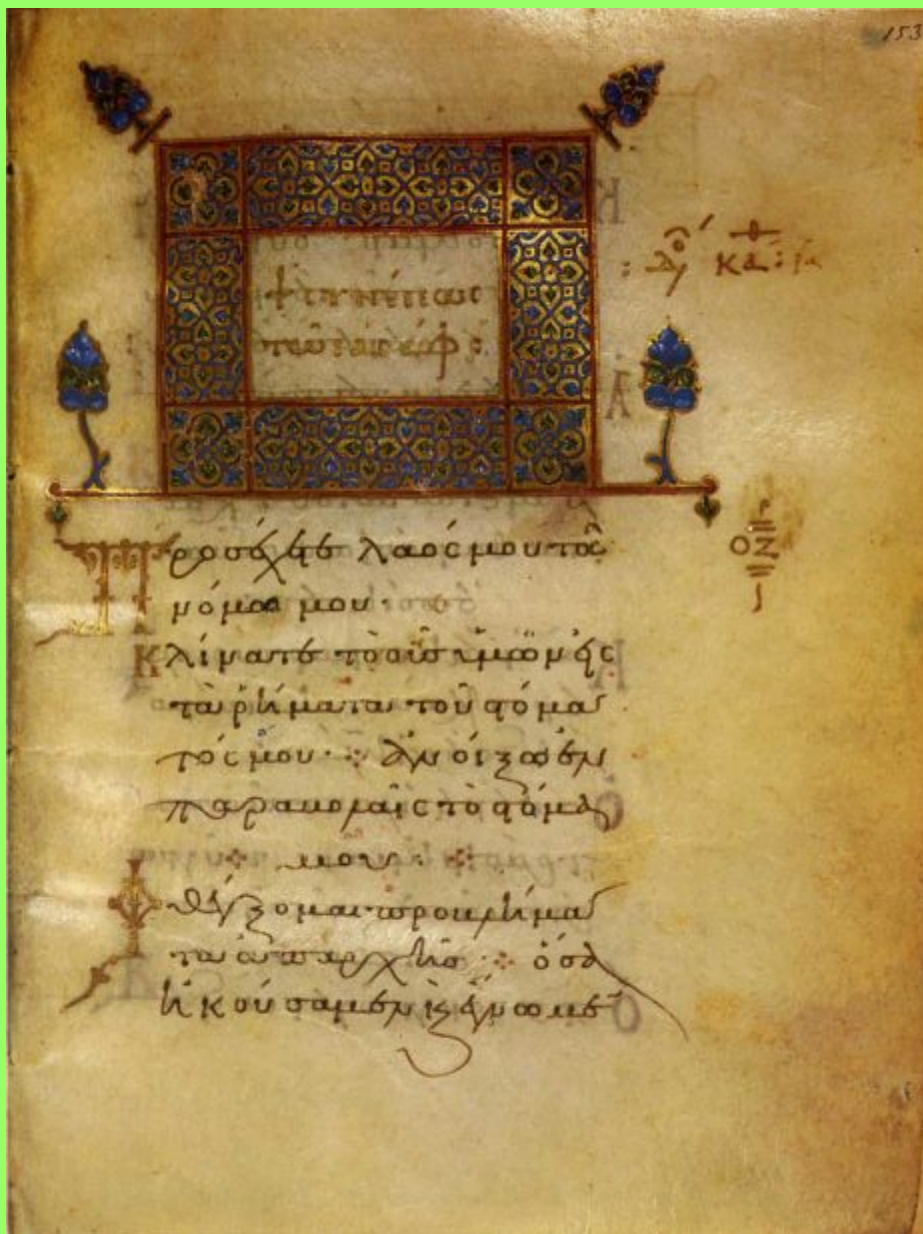 153
ΟΖ
Προσέχετε λαός μου τὸν
νόμον μου·
Κλίνατε τὸ οὖς ὑμῶν εἰς
τὰ ῥήματα τοῦ στόμα
τός μου· ἀνοίξω ἐν
παραβολαῖς τὸ στόμα
μου
Φθέγξομαι προβλήμα
τα ἀπαρχῆς· ὅσα
ἠκούσαμεν ϗ ἔγνωμεν